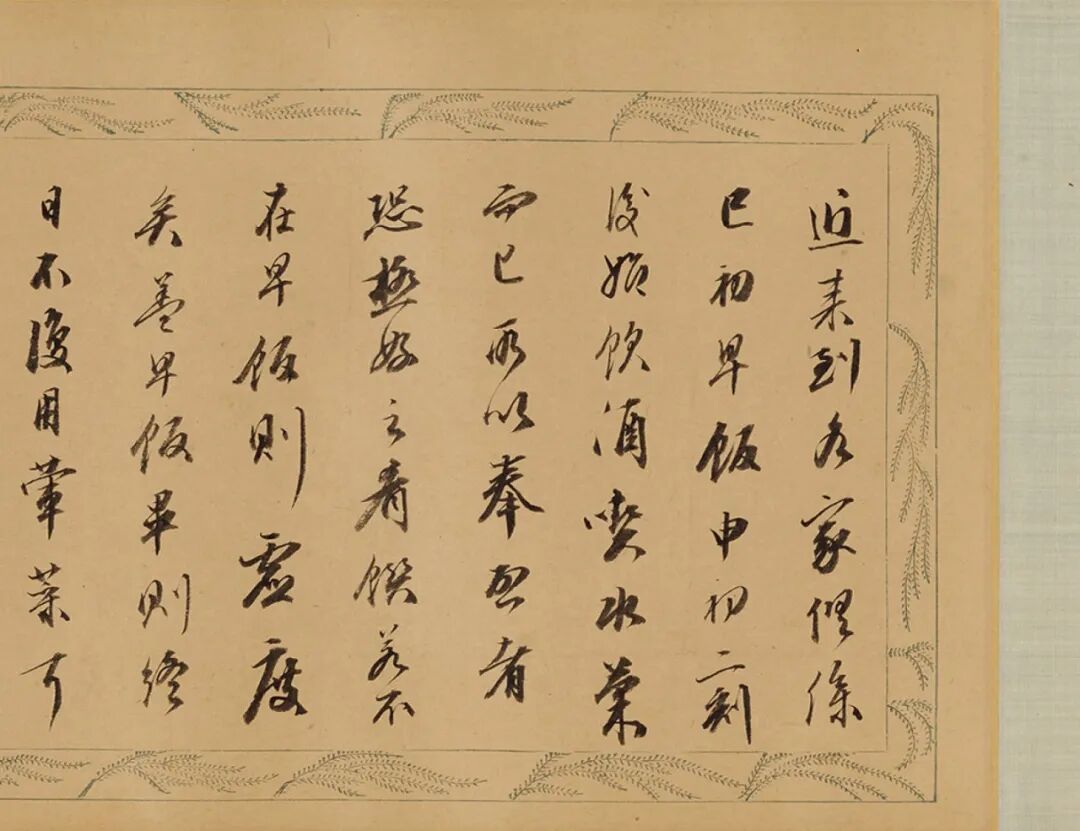 近来到各家俱係
巳初早飯申初二刻
後始飲酒喫水菓
而已所以奉懇者
恐極好之肴饌若不
在早飯則虛度
矣蓋早飯畢則終
日不復用葷菜可